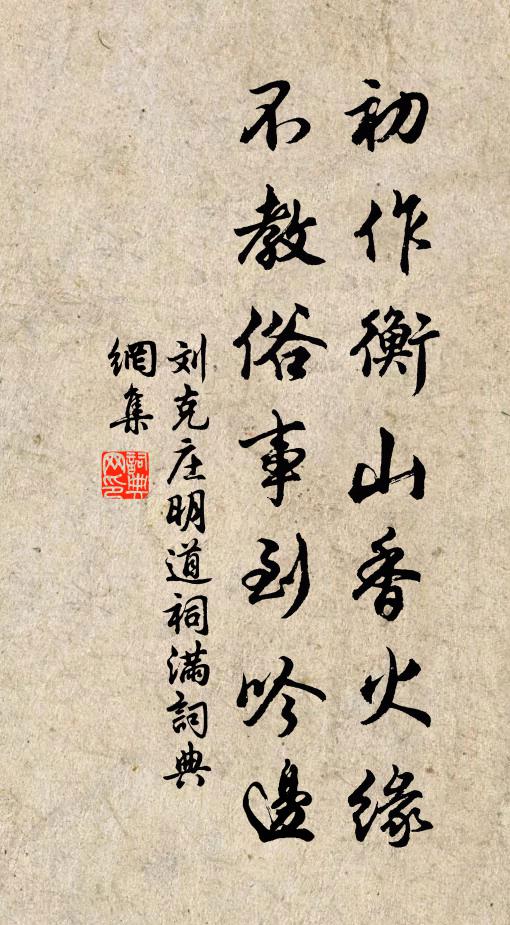 初作衡山香火缘
不教俗事到吟邊
刘克庄明道祠满詞典
網集
詞典网印